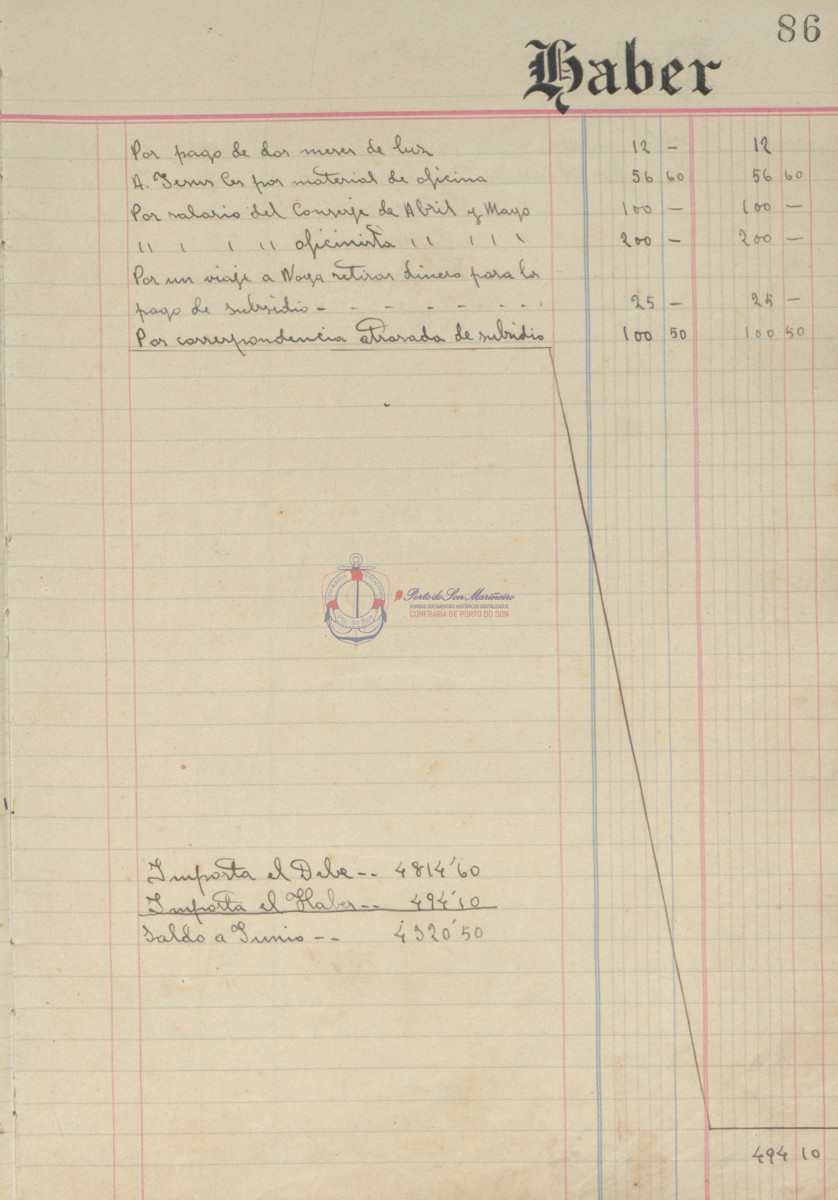 86
Haber
Por pago de dos meses de luz 12 - 12
A. Jesus Ces por material de oficina 56 60 56 60
Por salario del Conserje de Abril y Mayo 100 - 100 -
" " " " oficinista " " " " " 200 - 200 -
Por un viaje a Noya retirar dinero para los
pago de subsidio - - - - - - - - 25 - 25 -
Por correspondencia atrasada de subsidio 100 50 100 50
#Porto do Son Mariñeiro
FONDOS DOCUMENTAIS HISTÓRICOS DIXITALIZADOS
CONFRARÍA DE PORTO DO SON
Importa el Debe -- 4814'60
Importa el Haber -- 494'10
Saldo a Junio -- 4320'50
494 10